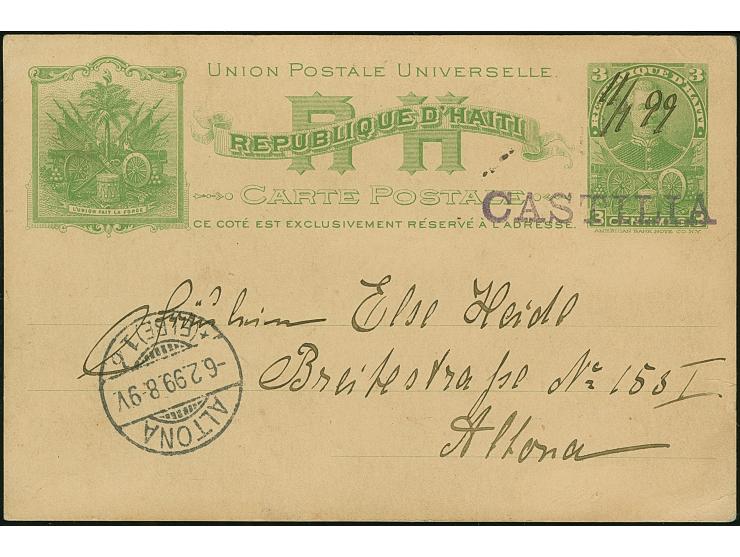 UNION POSTALE UNIVERSELLE.
R H
REPUBLIQUE D'HAITI
CARTE POSTALE
CE COTÉ EST EXCLUSIVEMENT RÉSERVÉ À L'ADRESSE.
L'UNION FAIT LA FORCE
3 3
REPUBLIQUE D'HAITI
99
3 CENTIMES 3
AMERICAN BANK NOTE CO. N.Y.
CASTILIA
Fräulein Else Heide
Breitestraße No 155 I
Altona
ALTONA
-6.2.99.8-9V
*(ELBE)1.b